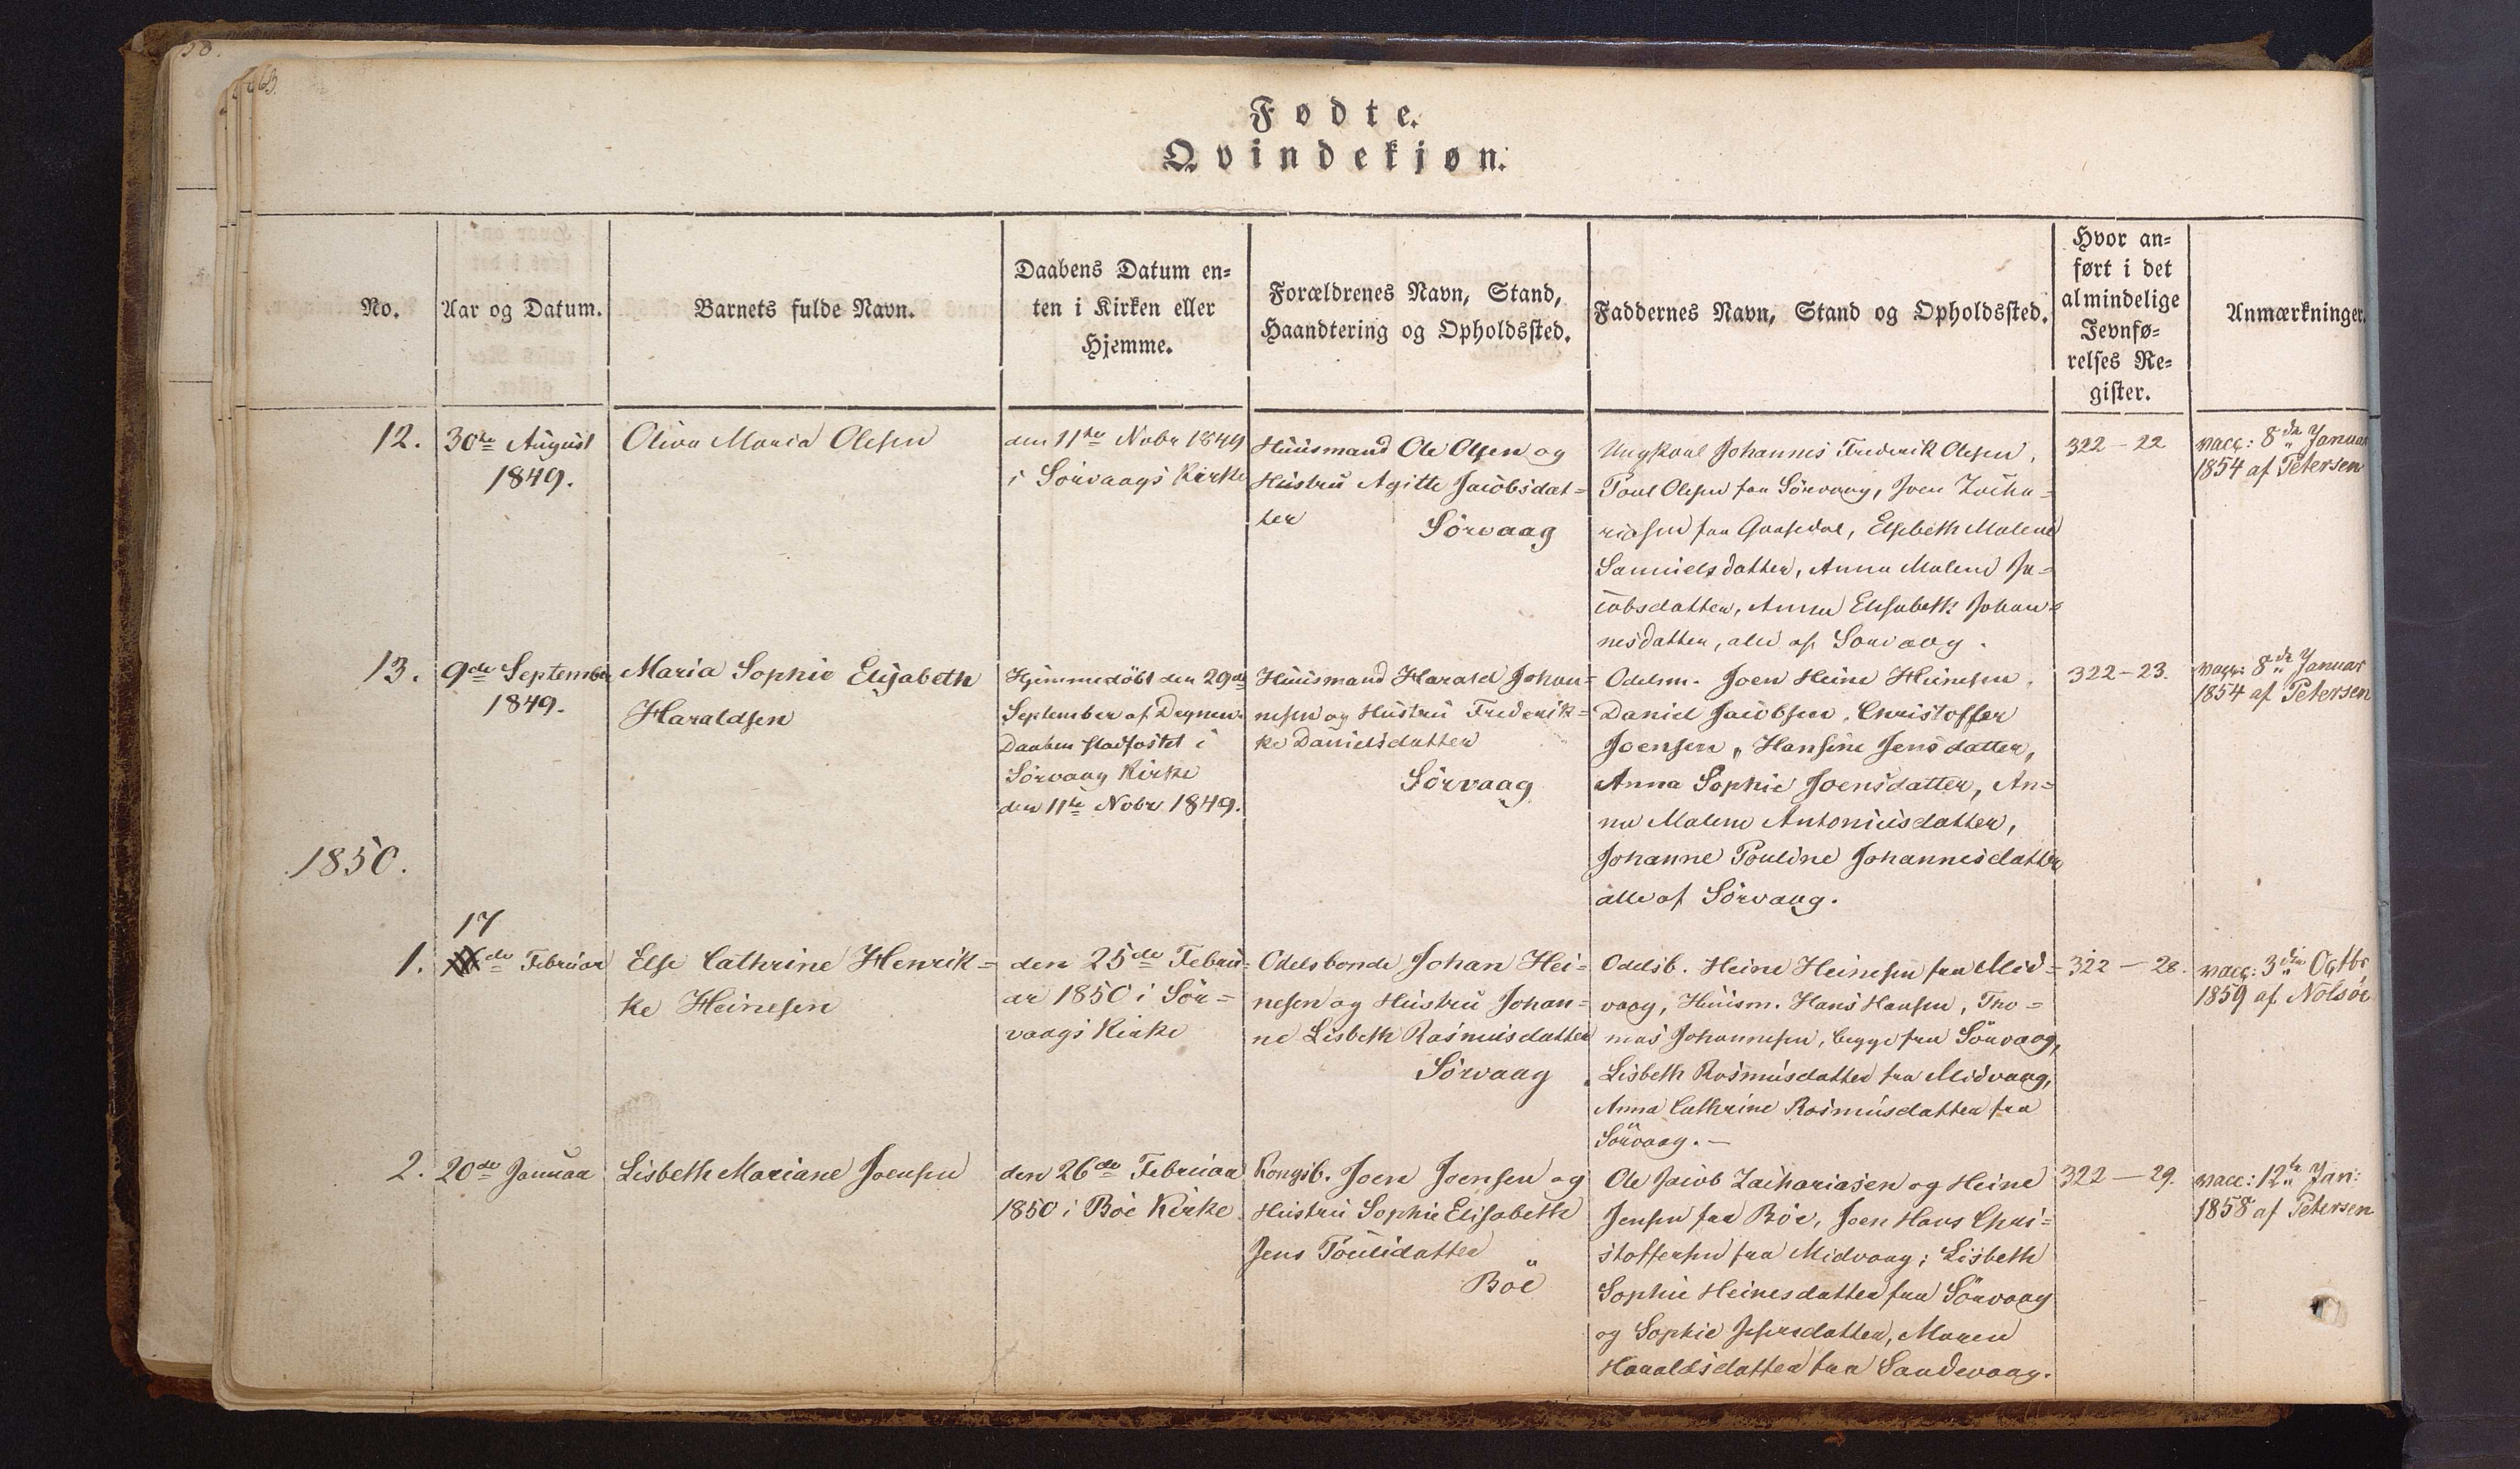 Fødte.
Qvindekjøn.
No.
Aar og Datum.
Barnets fulde Navn.
Daabens Datum en-
ten i Kirken eller
Hjemme.
Forældrenes Navn, Stand,
Haandtering og Opholdssted.
Faddernes Navn, Stand og Opholdssted.
Hvor an-
ført i det
almindelige
Jevnfø-
relses Re-
gister.
Anmærkninger.
12.
30te August
1849.
Olivia Maria Olesen
den 11te Nobr 1849
i Sörvaags Kirke
Huusmand Ole Olsen og
Hustru Agitte Jacobsdat-
ter
Sörvaag
Ungkarl Johannes Frederik Olesen,
Poul Olesen fra Sörvaag, Joen Zacha-
riasen fra Gaasedal, Elsebeth Malene
Samuelsdatter, Anna Malene Ja-
cobsdatter, Anna Elisabeth Johan-
nesdatter, alle af Sörvaag.
322 - 22
vacc: 8de Januar
1854 af Petersen
13.
9de September
1849.
Maria Sophie Elisabeth
Haraldsen
Hjemmedöbt den 29de
September af Degnen.
Daaben stadfæstet i
Sörvaag Kirke
den 11te Nobr 1849.
Huusmand Harald Johan-
nesen og Hustru Frederik-
ke Danielsdatter
Sörvaag
Odelsm. Joen Heine Heinesen,
Daniel Jacobsen, Christoffer
Joensen, Hansine Jensdatter,
Anna Sophie Joensdatter, An-
na Malene Antoniusdatter,
Johanne Pouline Johannesdatter
alle af Sörvaag.
322 - 23.
vacc: 8de Januar
1854 af Petersen
1850.
1.
17
de Februar
Else Cathrine Henrik-
ke Heinesen
den 25de Febru-
ar 1850 i Sör-
vaags Kirke
Odelsbonde Johan Hei-
nesen og Hustru Johan-
ne Lisbeth Rasmusdatter
Sörvaag
Odelsb. Heine Heinesen fra Mid-
vaag, Huusm. Hans Hansen, Tho-
mas Johannesen, begge fra Sörvaag,
Lisbeth Rasmusdatter fra Midvaag,
Anna Cathrine Rasmusdatter fra
Sörvaag. —
322 — 28.
vacc: 3die Octbr
1859 af Nolsöe
2.
20de Januar
Lisbeth Mariane Joensen
den 26de Februar
1850 i Böe Kirke
Kongsb. Joen Joensen og
Hustru Sophie Elisabeth
Jens Poulsdatter
Böe
Ole Jacob Zachariasen og Heine
Jensen fra Böe, Joen Hans Chri-
stoffersen fra Midvaag; Lisbeth
Sophie Heinesdatter fra Sörvaag
og Sophie Jensdatter, Maren
Haraldsdatter fra Sandevaag.
322 — 29.
vacc: 12te Jan:
1858 af Petersen